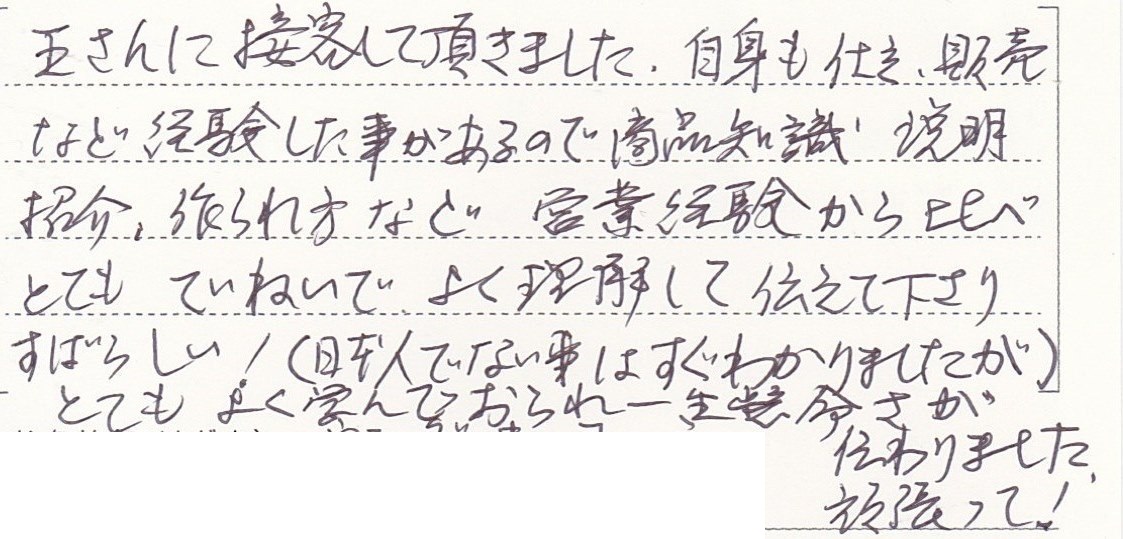 王さんに接客して頂きました。自身も仕立、販売
など経験した事があるので商品知識 説明
紹介、作られ方など 営業経験から比べ
とても ていねいで よく理解して伝えて下さり
すばらしい!(日本人でない事はすぐわかりましたが)
とても よく学んでおられ一生懸命さが
伝わりました、
頑張って!